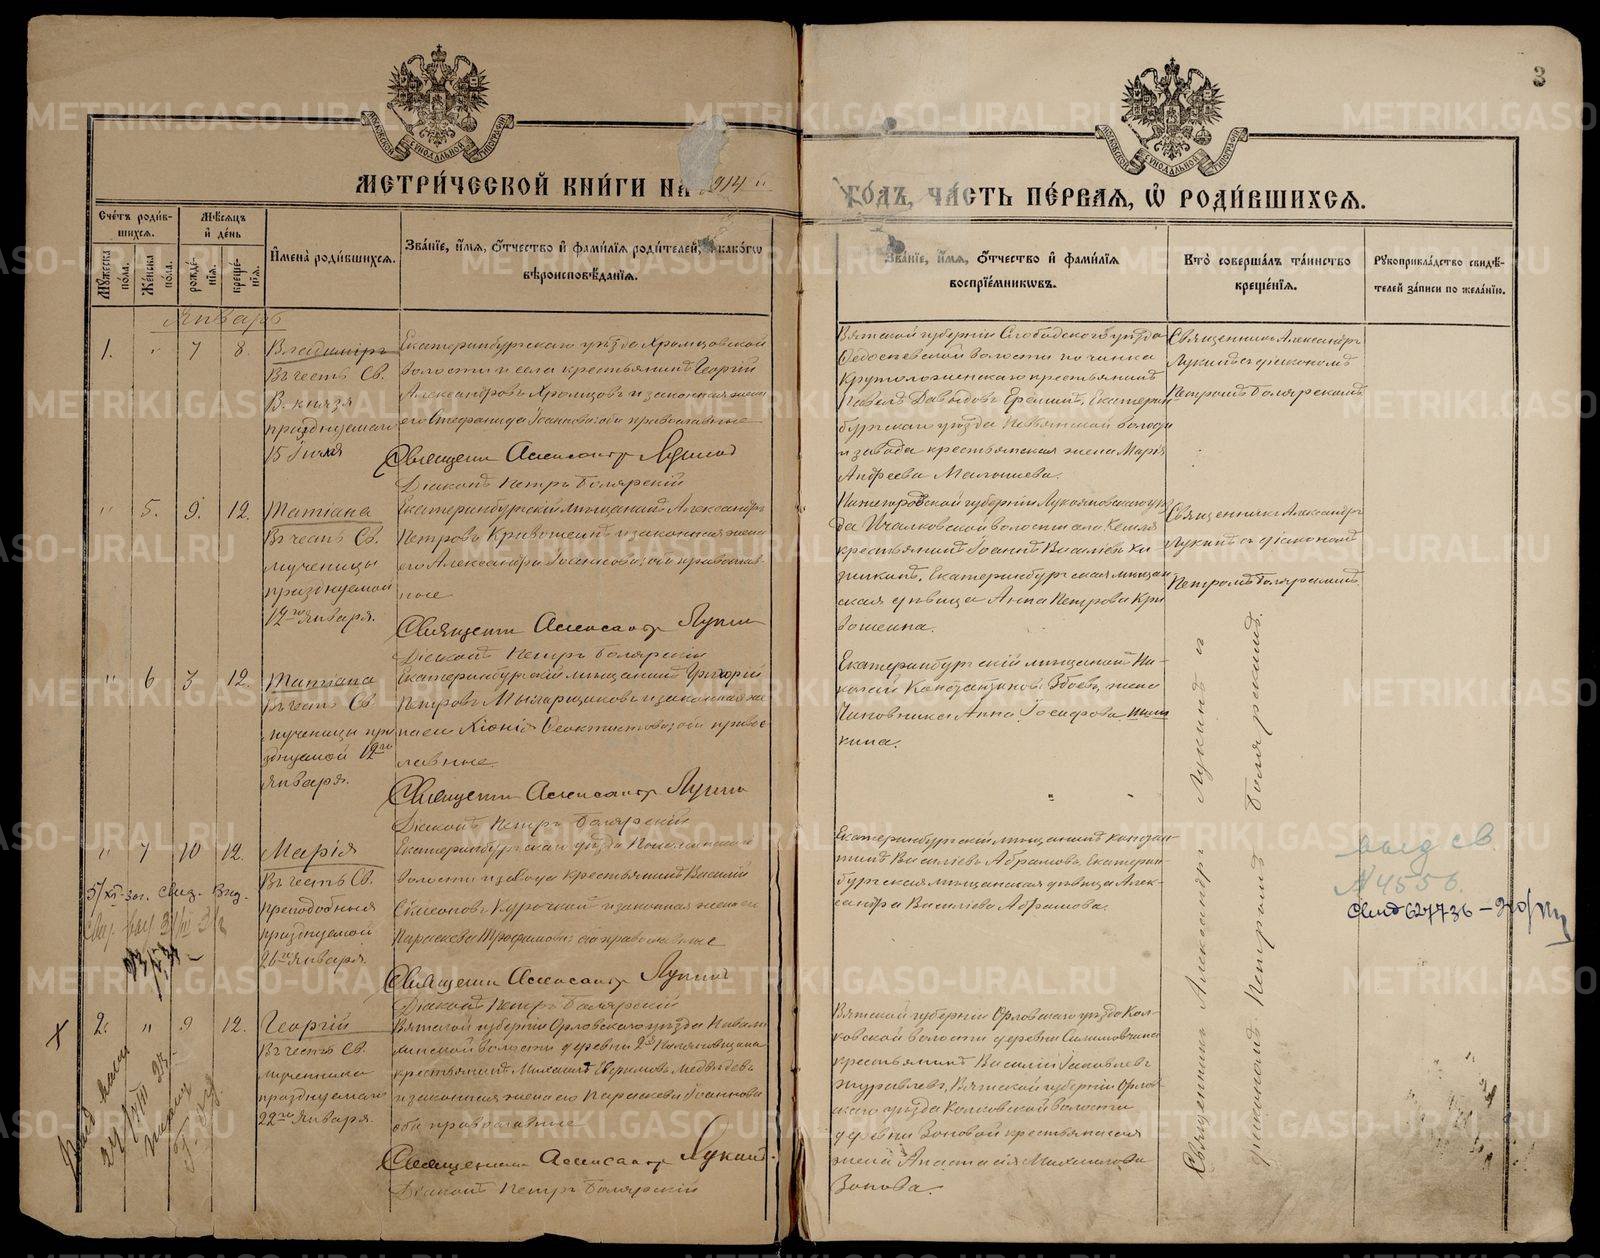 3
МОСКОВСКОЙ СѴНОДАЛЬНОЙ ТИПОГРАФІИ
МОСКОВСКОЙ СѴНОДАЛЬНОЙ ТИПОГРАФІИ
МЕТРИ́ЧЕСКОЙ КНИ́ГИ НА 914
ГО́ДЪ, ЧА́СТЬ ПЕ́РВАЯ, Ѡ҆ РОДИ́ВШИХСЯ.
Сче́тъ роди́в-
шихся.
Мꙋ́жеска по́ла.
Же́нска по́ла.
Мѣ́сяцъ
и҆ де́нь
рожде́нїя.
креще́нїя.
И҆мена̀ роди́вшихся.
Зва́нїе, и҆́мя, ѻ҆́тчество и҆ фами́лїя роди́телей, и҆ како́гѡ
вѣроисповѣ́данїя.
Зва́нїе, и҆́мя, ѻ҆́тчество и҆ фами́лїя
воспрїе́мникѡвъ.
Кто̀ соверша́лъ та́инство
креще́нїя.
Рꙋкоприкла́дство свидѣ́-
телей за́писи по жела́нїю.
Январь
1. " 7 8.
Владиміръ
Въ честь Св.
В. князя
празднуемаго
15 Іюля
Екатеринбургскаго уѣзда Храмцовской
волости и села крестьянинъ Георгій
Александровъ Храмцовъ и законная жена
его Стефанида Іоаннова; оба православные
Священн. Александръ Лукинъ
Діаконъ Петръ Боляр­скій
Вятской губерніи Слободского уѣзда
Федосѣевской волости починка
крестьянинъ
Павелъ Давыдовъ Ерёминъ, Екатерин
бургскаго уѣзда Невьянской волости
и завода крестьянская жена Марія
Андреева Малышева.
Священникъ Александръ
Лукинъ съ діакономъ
Петромъ Болярскимъ
" 5. 9. 12.
Татіана
Въ честь Св.
мученицы
празднуемой
12го Января.
Екатеринбургскій мѣщанинъ Александръ
Петровъ Кривошеинъ и законная жена
его Александра Іоаннова; оба православ-
ные
Священн. Александръ Лукинъ
Діаконъ Петръ Болярскій
Нижегородской губерніи Лукояновскаго уѣз
да Ичалковской волости села Кемля
крестьянинъ Іоаннъ Василіевъ
Екатеринбургская мѣщан
ская дѣвица Анна Петрова Кри
вошеина.
Священникъ Александръ
Лукинъ съ діакономъ
Петромъ Болярскимъ
" 6 3 12.
Татіана
Въ честь Св.
мученицы пра
зднуемой 12го
Января.
Екатеринбургскій мѣщанинъ Григорій
Петровъ и законная же
на его Хіонія Феоктистова; оба право
славные.
Священн. Александръ Лукинъ
Діаконъ Петръ Болярскій
Екатеринбургскій мѣщанинъ Ни-
колай Константиновъ жена
Чиновника Анна Іосифова
кина.
" 7 10 12.
Марія
Въ честь Св.
преподобныя
празднуемой
26го Января.
Екатеринбургскаго уѣзда
волости и завода крестьянинъ Василій
Сѵмеоновъ Курочкинъ и законная жена его
Параскева Трофимова; оба православные
Священн. Александръ Лукинъ
Діаконъ Петръ Болярскій
Екатеринбургскій мѣщанинъ Констан-
тинъ Василіевъ Абрамовъ, Екатерин-
бургская мѣщанская дѣвица Алек-
сандра Василіева Абрамова.
выд св.
№ 4556.
свид 627736
2. " 9 12.
Георгій
Въ честь Св.
мученика
празднуемаго
22го Января.
Вятской губерніи Орловскаго уѣзда
волости деревни
крестьянинъ Михаилъ Евфимовъ Медвѣдевъ
и законная жена его Параскева Іоаннова
оба православные
Священникъ Александръ Лукинъ.
Діаконъ Петръ Болярскій
Вятской губерніи Орловскаго уѣзда Кол-
ковской волости деревни
крестьянинъ Василій Іаковлевъ
Журавлевъ, Вятской губерніи Орлов-
скаго уѣзда Колковской волости
деревни Зоновой крестьянская
жена Анастасія Михаилова
Зонова.
Священникъ Александръ Лукинъ съ
діакономъ Петромъ Болярскимъ.
METRIKI.GASO-URAL.RU